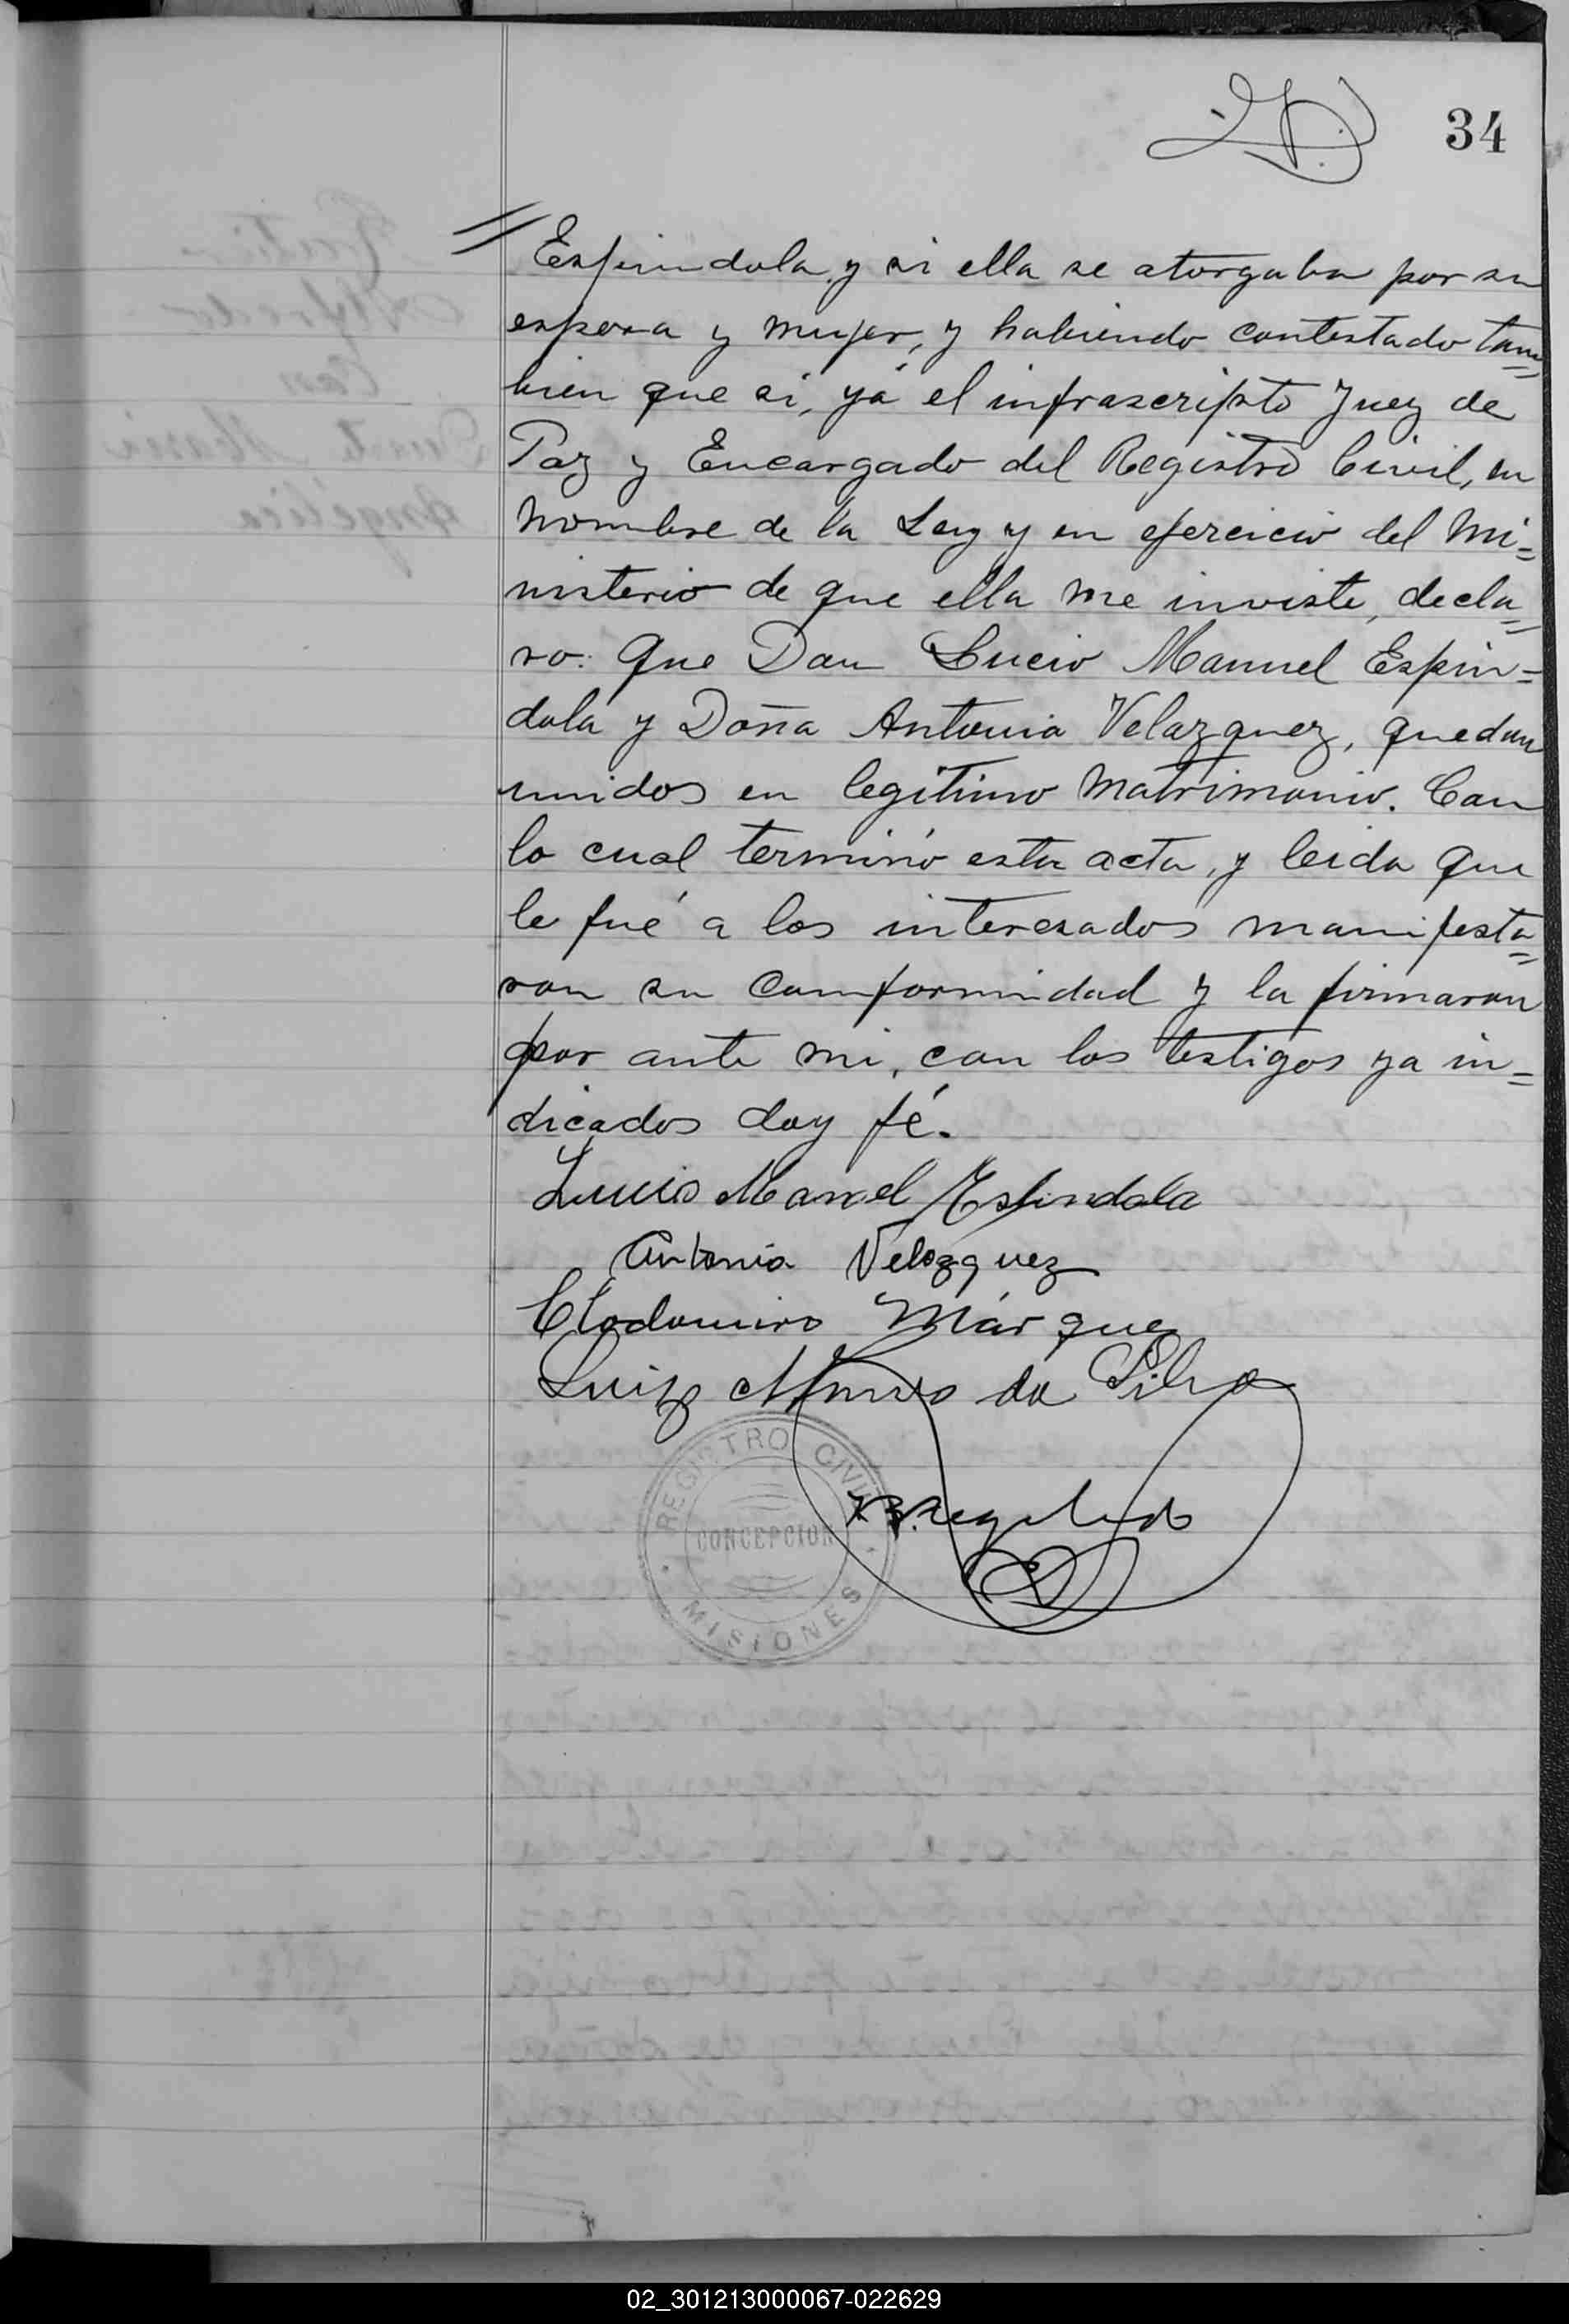 34
Espindola, y si ella se otorgaba por su
esposa y mujer, y habiendo contestado tam=
bien que si, yó el infrascripto Juez de
Paz y Encargado del Registro Civil, en
nombre de la Ley y en ejercicio del Mi=
nisterio de que ella me inviste, decla=
ro: Que Don Lucio Manuel Espin=
dola y Doña Antonia Velazquez, quedan
unidos en legítimo matrimonio. Con
lo cual terminó esta acta, y leida que
le fué a los interesados manifesta=
ron su comformidad y la firmaron
por ante mi, con los testigos ya in=
dicados doy fé.
Lucio Manuel Espindola
Antonia Velazquez
Clodomiro Márquez
Luiz da Silva
REGISTRO CIVIL
CONCEPCION
MISIONES
02_301213000067-022629